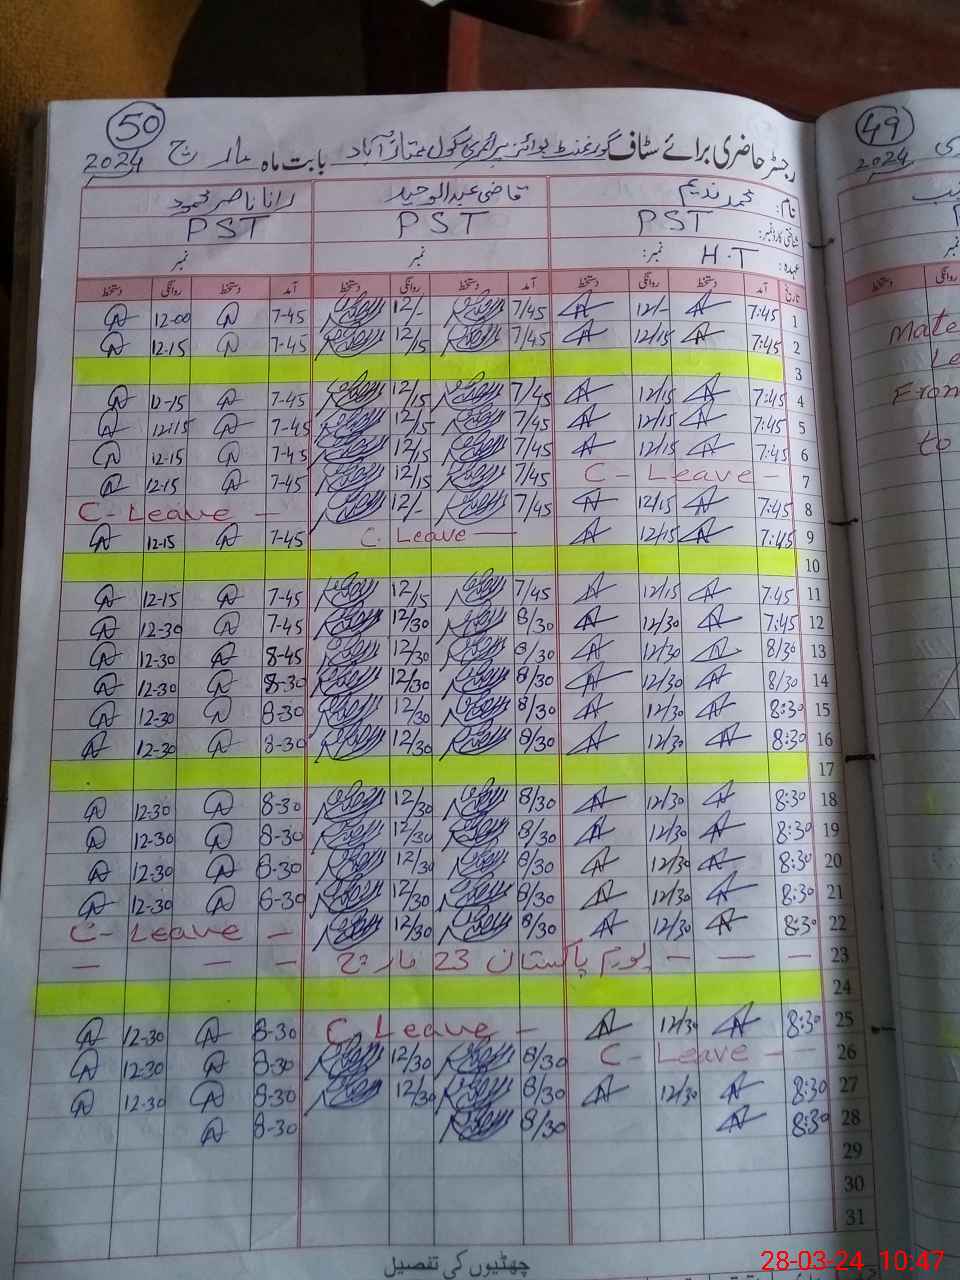 50
رجسٹر حاضری برائے سٹاف گورنمنٹ بوائز پرائمری سکول ممتاز آباد بابت ماہ مارچ 2024
نام: محمد ندیم قاضی عبدالوحید رانا ناصر محمود
شناختی کارڈ نمبر: PST PST PST
عہدہ: H.T نمبر: نمبر نمبر
تاریخ آمد دستخط روانگی دستخط آمد دستخط روانگی دستخط آمد دستخط روانگی دستخط
1 7:45 12/- 7/45 12/- 7-45 12-00
2 7:45 12/15 7/45 12/15 7-45 12-15
3
4 7:45 12/15 7/45 12/15 7-45 12-15
5 7:45 12/15 7/45 12/15 7-45 12-15
6 7:45 12/15 7/45 12/15 7-45 12-15
7 C - Leave - 7/45 12/15 7-45 12-15
8 7:45 12/15 7/45 12/- C - Leave -
9 7:45 12/15 C. Leave — 7-45 12-15
10
11 7:45 12/15 7/45 12/15 7-45 12-15
12 7:45 12/30 8/30 12/30 7-45 12-30
13 8/30 12/30 8/30 12/30 8-45 12-30
14 8/30 12/30 8/30 12/30 8-30 12-30
15 8:30 12/30 8/30 12/30 8-30 12-30
16 8:30 12/30 8/30 12/30 8-30 12-30
17
18 8:30 12/30 8/30 12/30 8-30 12-30
19 8:30 12/30 8/30 12/30 8-30 12-30
20 8:30 12/30 8/30 12/30 8-30 12-30
21 8:30 12/30 8/30 12/30 8-30 12-30
22 8:30 12/30 8/30 12/30 C - Leave -
23 — — — یوم پاکستان 23 مارچ — — —
24
25 8:30 12/30 C Leave - 8-30 12-30
26 C - Leave - - 8/30 12/30 8-30 12-30
27 8:30 12/30 8/30 12/30 8-30 12-30
28 8:30 8/30 8-30
29
30
31
چھٹیوں کی تفصیل
49
2024
نمبر
دستخط
Mate
Le
From
to
28-03-24 10:47